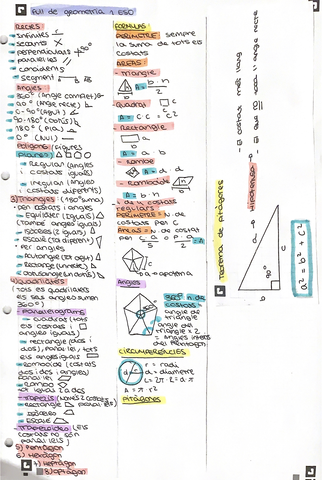 Full de geometria 1 ESO
RECTES
infinites
secants
perpendiculars 90º
paral·leles //
coincidents
segment
Angles:
360º (Angle complet)
90º (Angle recte)
0-90º (Agut)
90-180º (Obtús)
180º (Pla)
0º (Nul)
Polígons (figures planes)
Regular (angles i costats iguals)
Irregular (angles i costats diferents)
3) Triangles (180º suma)
- per costats i angles
Equilàter (iguals)
també angles iguals
Isòsceles (2 iguals)
Escalè (tot diferent)
- Per angles
Acutangle (tot agut)
Rectangle (un recte)
Obtusangle (un obtús)
4) Quadrilàters
tots els quadrilaters
els seus angles sumen
360º
- Paral·lelograms
quadrat (tots
els costats i
angles iguals)
rectangle (dos i
dos), paral·lel, tots
els angles iguals
romboide (costats
dos i dos i angles)
paral·lel
Rombo
tot iguals 2 a dos
- Trapezis (només 2 costats
rectangle paral·lels)
isòsceles
escalè
- Trapezoides (els
costats no són
paral·lels)
5) Pentàgon
6) Hexàgon
7) Heptàgon
8) Octàgon
FORMULES
PERIMETRE: sempre
la suma de tots els
costats
AREAS:
- Triangle
A = b · h
2
- Quadrat
A = c · c = c2
- Rectangle
A = a · b
- Rombe
A = d · d
- Romboide
A = b · h
regulars
PERIMETRE = N. de
costats per c
AREAS = N. de costat
per c a o P a
a = apotema
Angles
360º n. de
costats =
angle de
triangle
angle del
triangle x 2
= Angles interns
del pentàgon
CIRCUMFERÈNCIES
r = radi
d = diametre
L = 2π · r = d · π
A = π · r2
PITÀGORES
Teorema de pitàgores
- Hipotenusa
= El costat més llarg
= El que veu l'angle recte
a2 = b2 + c2